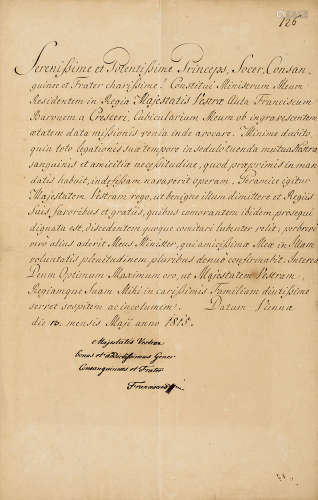 126
Serenissime et Potentissime Princeps, Socer, Consan-
guinee et Frater charissime! Constitui Ministrum Meum
Residentem in Regia Majestatis Vestræ Aula Franciscum
Baronem a Cresceri, Cubicularium Meum ob ingravescentem
ætatem data missionis venia inde avocare. Minime dubito,
quin toto legationis suæ tempore in sedulo tuenda mutua Nostra
sanguinis et amicitiæ necessitudine, quod præprimis in man-
datis habuit, indefessam navaverit operam. Peramice igitur
Majestatem Vestram rogo, ut benigne illum dimittere et Regiis
Suis favoribus et gratiis, quibus commorantem ibidem prosequi
dignata est, discedentem quoque comitari lubenter velit;
viro alius aderit Meus Minister, qui amicissimæ Meæ in Illam
voluntatis plenitudinem pluribus denuo confirmabit. Interea
Deum Optimum Maximum oro, ut Majestatem Vestram
Regiamque Suam Mihi carissimam Familiam diutissime
servet sospitem ac incolumem. Datum Viennæ
die 10. mensis Maji anno 1815.
Majestatis Vestræ
bonus et addictissimus Gener
Consanguineus et Frater
Franciscus